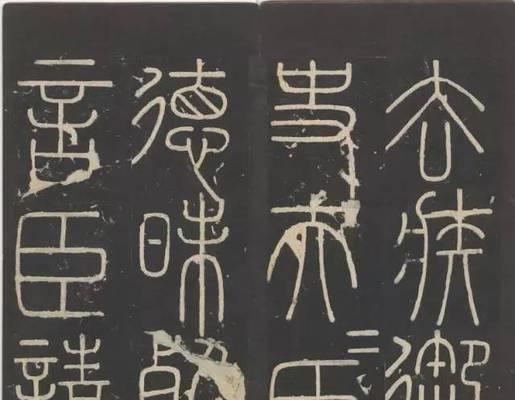 去疾御
史夫=臣
德昧死
言臣請